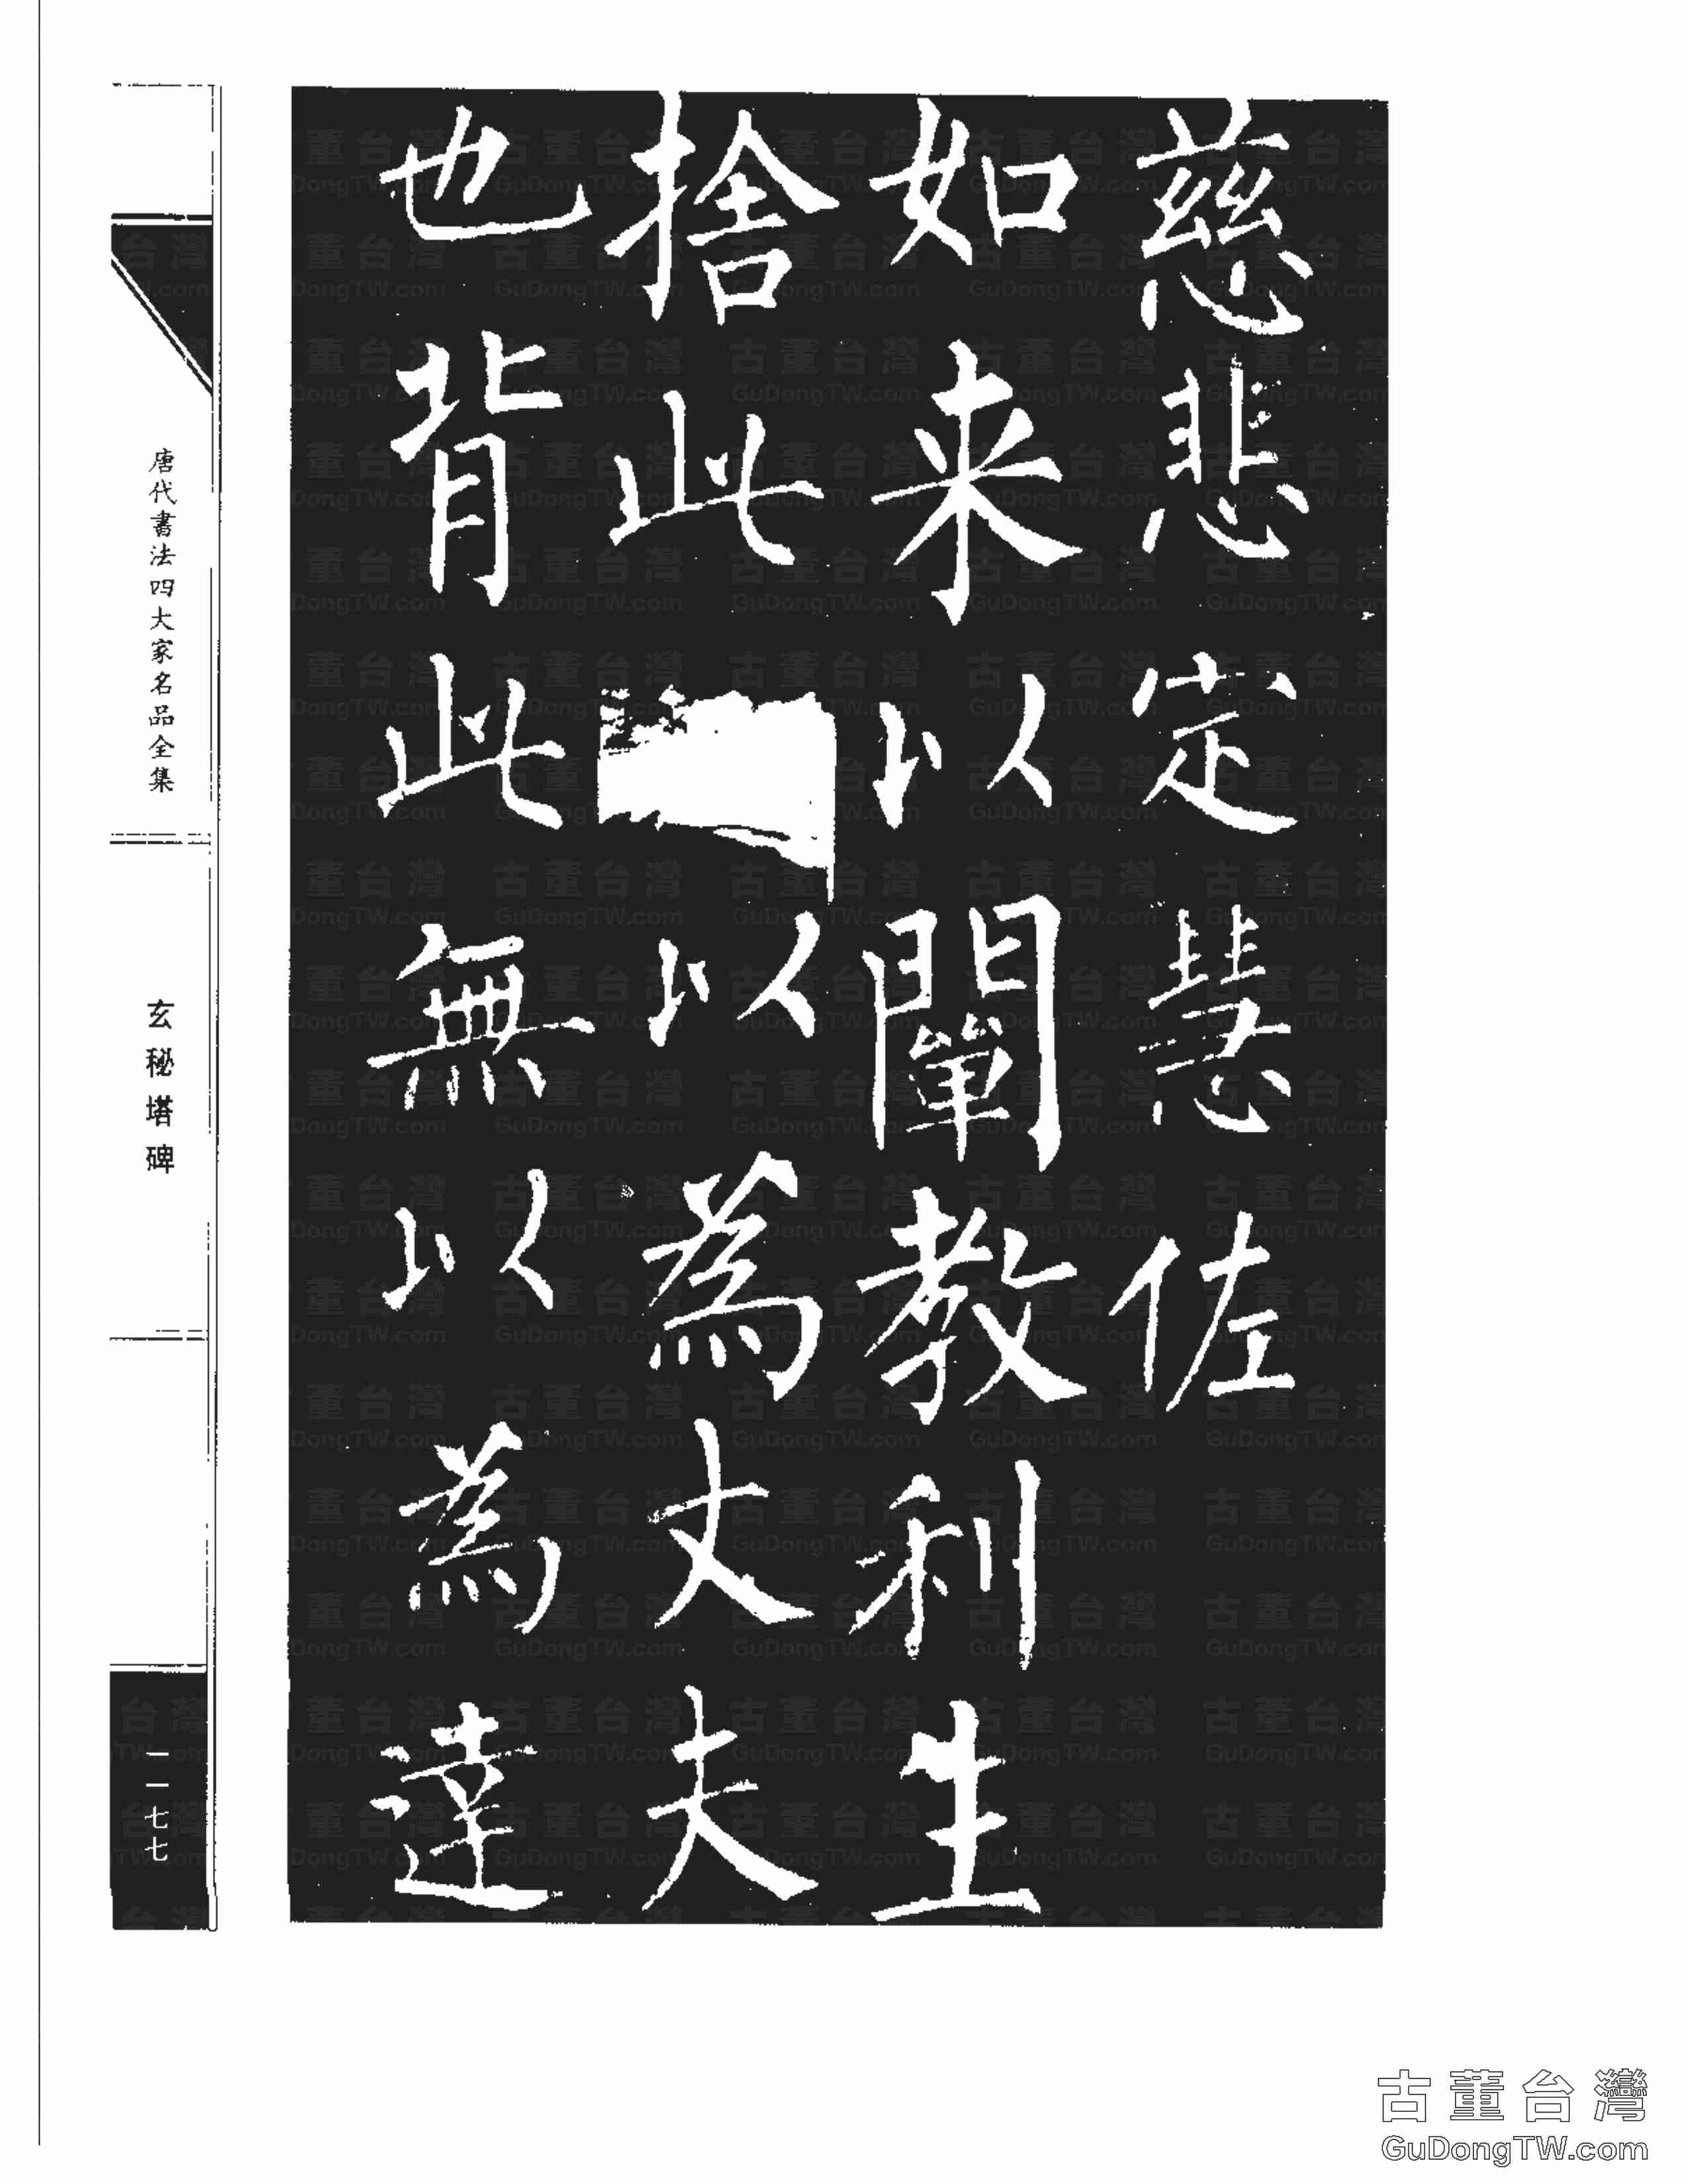 慈悲定慧佐
如来以闡教利生
捨此以為丈夫
也背此無以為達
唐代書法四大家名品全集
玄秘塔碑
一一七七
古董台灣
GuDongTW.com